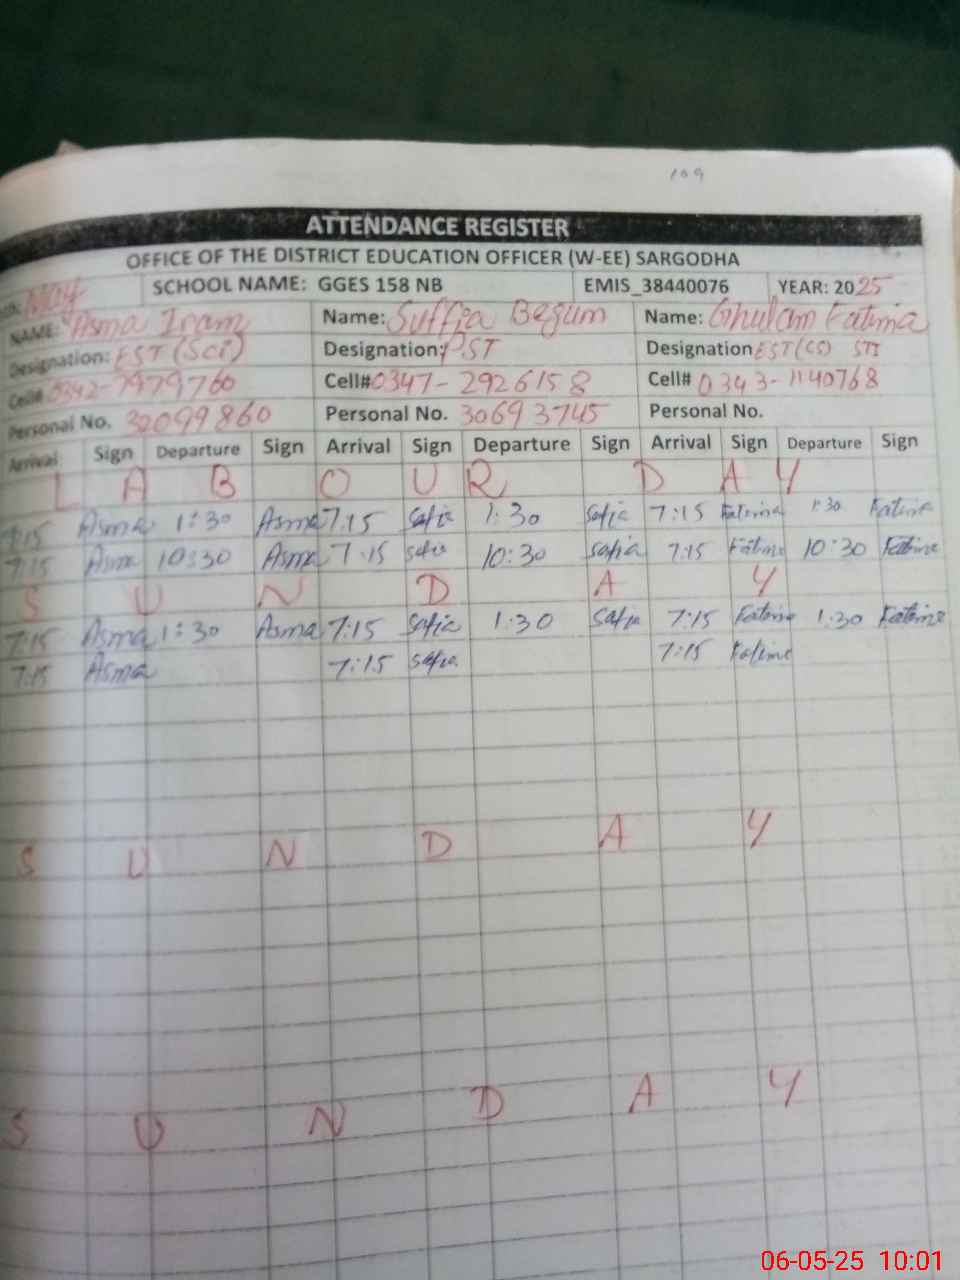 109
ATTENDANCE REGISTER
OFFICE OF THE DISTRICT EDUCATION OFFICER (W-EE) SARGODHA
May SCHOOL NAME: GGES 158 NB EMIS_38440076 YEAR: 2025
NAME: Asma Iram Name: Suffia Begum Name: Ghulam Fatima
Designation: EST (Sci) Designation: PST Designation EST (CS) STI
Cell# 0342-7979760 Cell# 0347-2926158 Cell# 0343-1140768
Personal No. 32099860 Personal No. 30693745 Personal No.
Arrival Sign Departure Sign Arrival Sign Departure Sign Arrival Sign Departure Sign
L A B O U R D A Y
7:15 Asma 1:30 Asma 7:15 Safia 1:30 Safia 7:15 Fatima 1:30 Fatima
7:15 Asma 10:30 Asma 7:15 Safia 10:30 Safia 7:15 Fatima 10:30 Fatima
S U N D A Y
7:15 Asma 1:30 Asma 7:15 Safia 1:30 Safia 7:15 Fatima 1:30 Fatima
7:15 Asma 7:15 Safia 7:15 Fatima
S U N D A Y
S U N D A Y
06-05-25 10:01